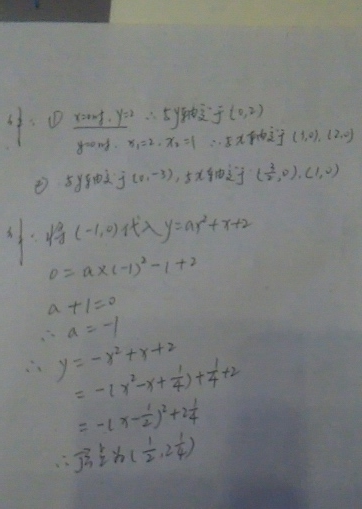 解: ① x=0时, y=2 ∴与y轴交于(0,2)
y=0时, x₁=2, x₂=1 ∴与x轴交于(1,0), (2,0)
② 与y轴交于(0,-3), 与x轴交于(3/2,0), (1,0)
解: 将(-1,0)代入y=ax²+x+2
0=a×(-1)²-1+2
a+1=0
∴a=-1
∴ y=-x²+x+2
=-(x²-x+1/4)+1/4+2
=-(x-1/2)²+2 1/4
∴顶点为(1/2, 2 1/4)